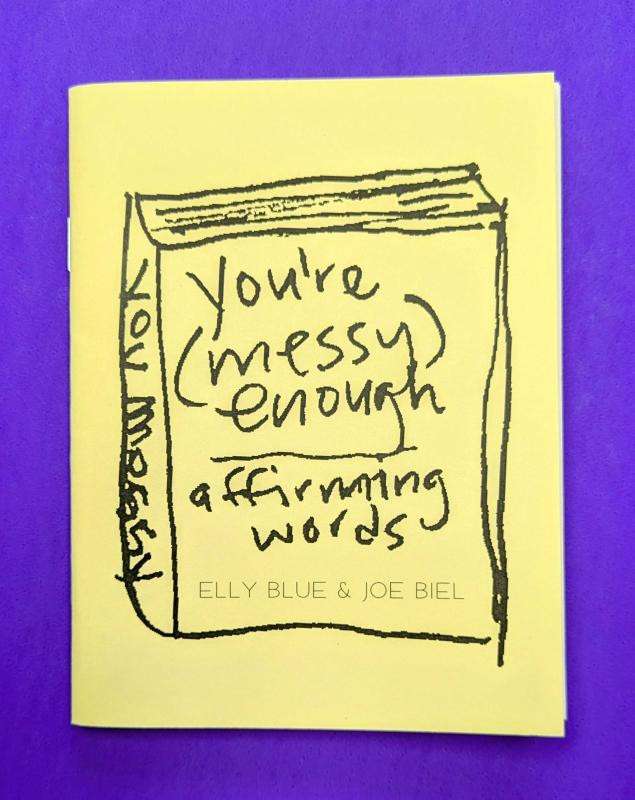 You Messy
you're
(messy)
enough
affirming
words
ELLY BLUE & JOE BIEL